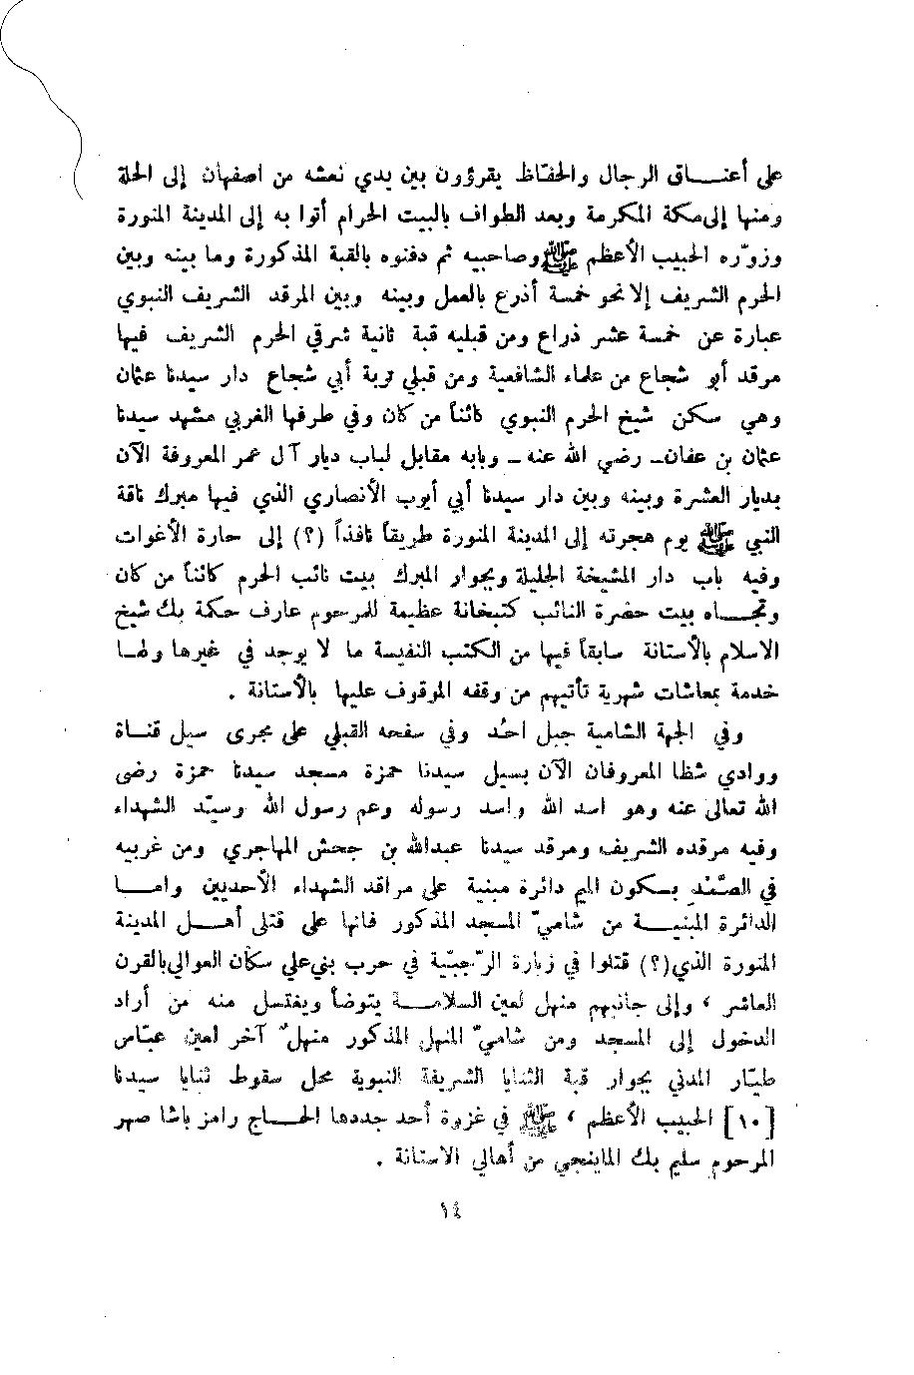 على أعنـــاق الرجال والحفّاظ يقرؤون بين يدي نعشه من اصفهان إلى الحلة
ومنها إلى مكة المكرمة وبعد الطواف بالبيت الحرام أتوا به إلى المدينة المنورة
وزوّره الحبيب الأعظم ﷺ وصاحبيه ثم دفنوه بالقبة المذكورة وما بينه وبين
الحرم الشريف إلا نحو خمسة أذرع بالعمل وبينه وبين المرقد الشريف النبوي
عبارة عن خمسة عشر ذراع ومن قبليه قبة ثانية شرقي الحرم الشريف فيها
مرقد أبو شجاع من علماء الشافعية ومن قبلي تربة أبي شجاع دار سيدنا عثمان
وهي سكن شيخ الحرم النبوي كائناً من كان وفي طرفها الغربي مشهد سيدنا
عثمان بن عفان ـ رضي الله عنه ـ وبابه مقابل لباب ديار آل عمر المعروفة الآن
بديار العشرة وبينه وبين دار سيدنا أبي أيوب الأنصاري الذي فيها مبرك ناقة
النبي ﷺ يوم هجرته إلى المدينة المنورة طريقاً نافذاً (؟) إلى حارة الأغوات
وفيه باب دار المشيخة الجليلة وبجوار المبرك بيت نائب الحرم كائناً من كان
وتجـــاه بيت حضرة النائب كتبخانة عظيمة للمرحوم عارف حكمة بك شيخ
الاسلام بالأستانة سابقاً فيها من الكتب النفيسة ما لا يوجد في غيرها ولهـا
خدمة بمعاشات شهرية تأتيهم من وقفه الموقوف عليها بالأستانة .
وفي الجهة الشامية جبل احُد وفي سفحه القبلي على مجرى سيل قنـاة
ووادي شظا المعروفان الآن بسيل سيدنا حمزة مسجد سيدنا حمزة رضى
الله تعالى عنه وهو اسد الله واسد رسوله وعم رسول الله وسيّد الشهداء
وفيه مرقده الشريف ومرقد سيدنا عبدالله بن جحش المهاجري ومن غربيه
في الصَّمْدِ بسكون الميم دائرة مبنية على مراقد الشهداء الأحديين وامــا
الدائرة المبنيـــة من شاميّ المسجد المذكور فانها على قتلى أهــل المدينة
المنورة الذي (؟) قتلوا في زيارة الرّجبيّة في حرب بني علي سكان العوالي بالقرن
العاشر ، وإلى جانبهم منهل لعين السلامـــة يتوضأ ويغتسل منه من أراد
الدخول إلى المسجد ومن شاميّ المنهل المذكور منهلٌ آخر لعين عبّاس
طيّار المدني بجوار قبة الثنايا الشريفة النبوية محل سقوط ثنايا سيدنا
[١٠] الحبيب الأعظم ، ﷺ في غزوة أحد جددها الحـــاج رامز باشا صهر
المرحوم سليم بك الماينجي من أهالي الاستانة .
١٤